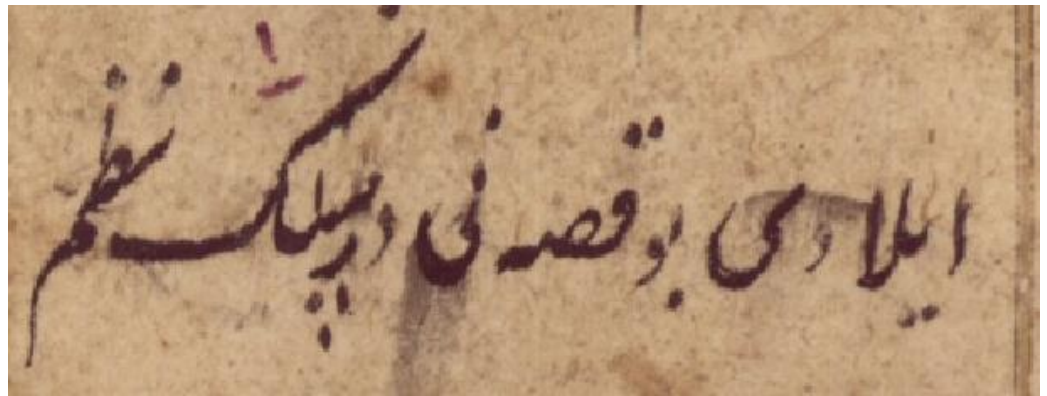 ایلادی بو قصه نی در سلک نظم